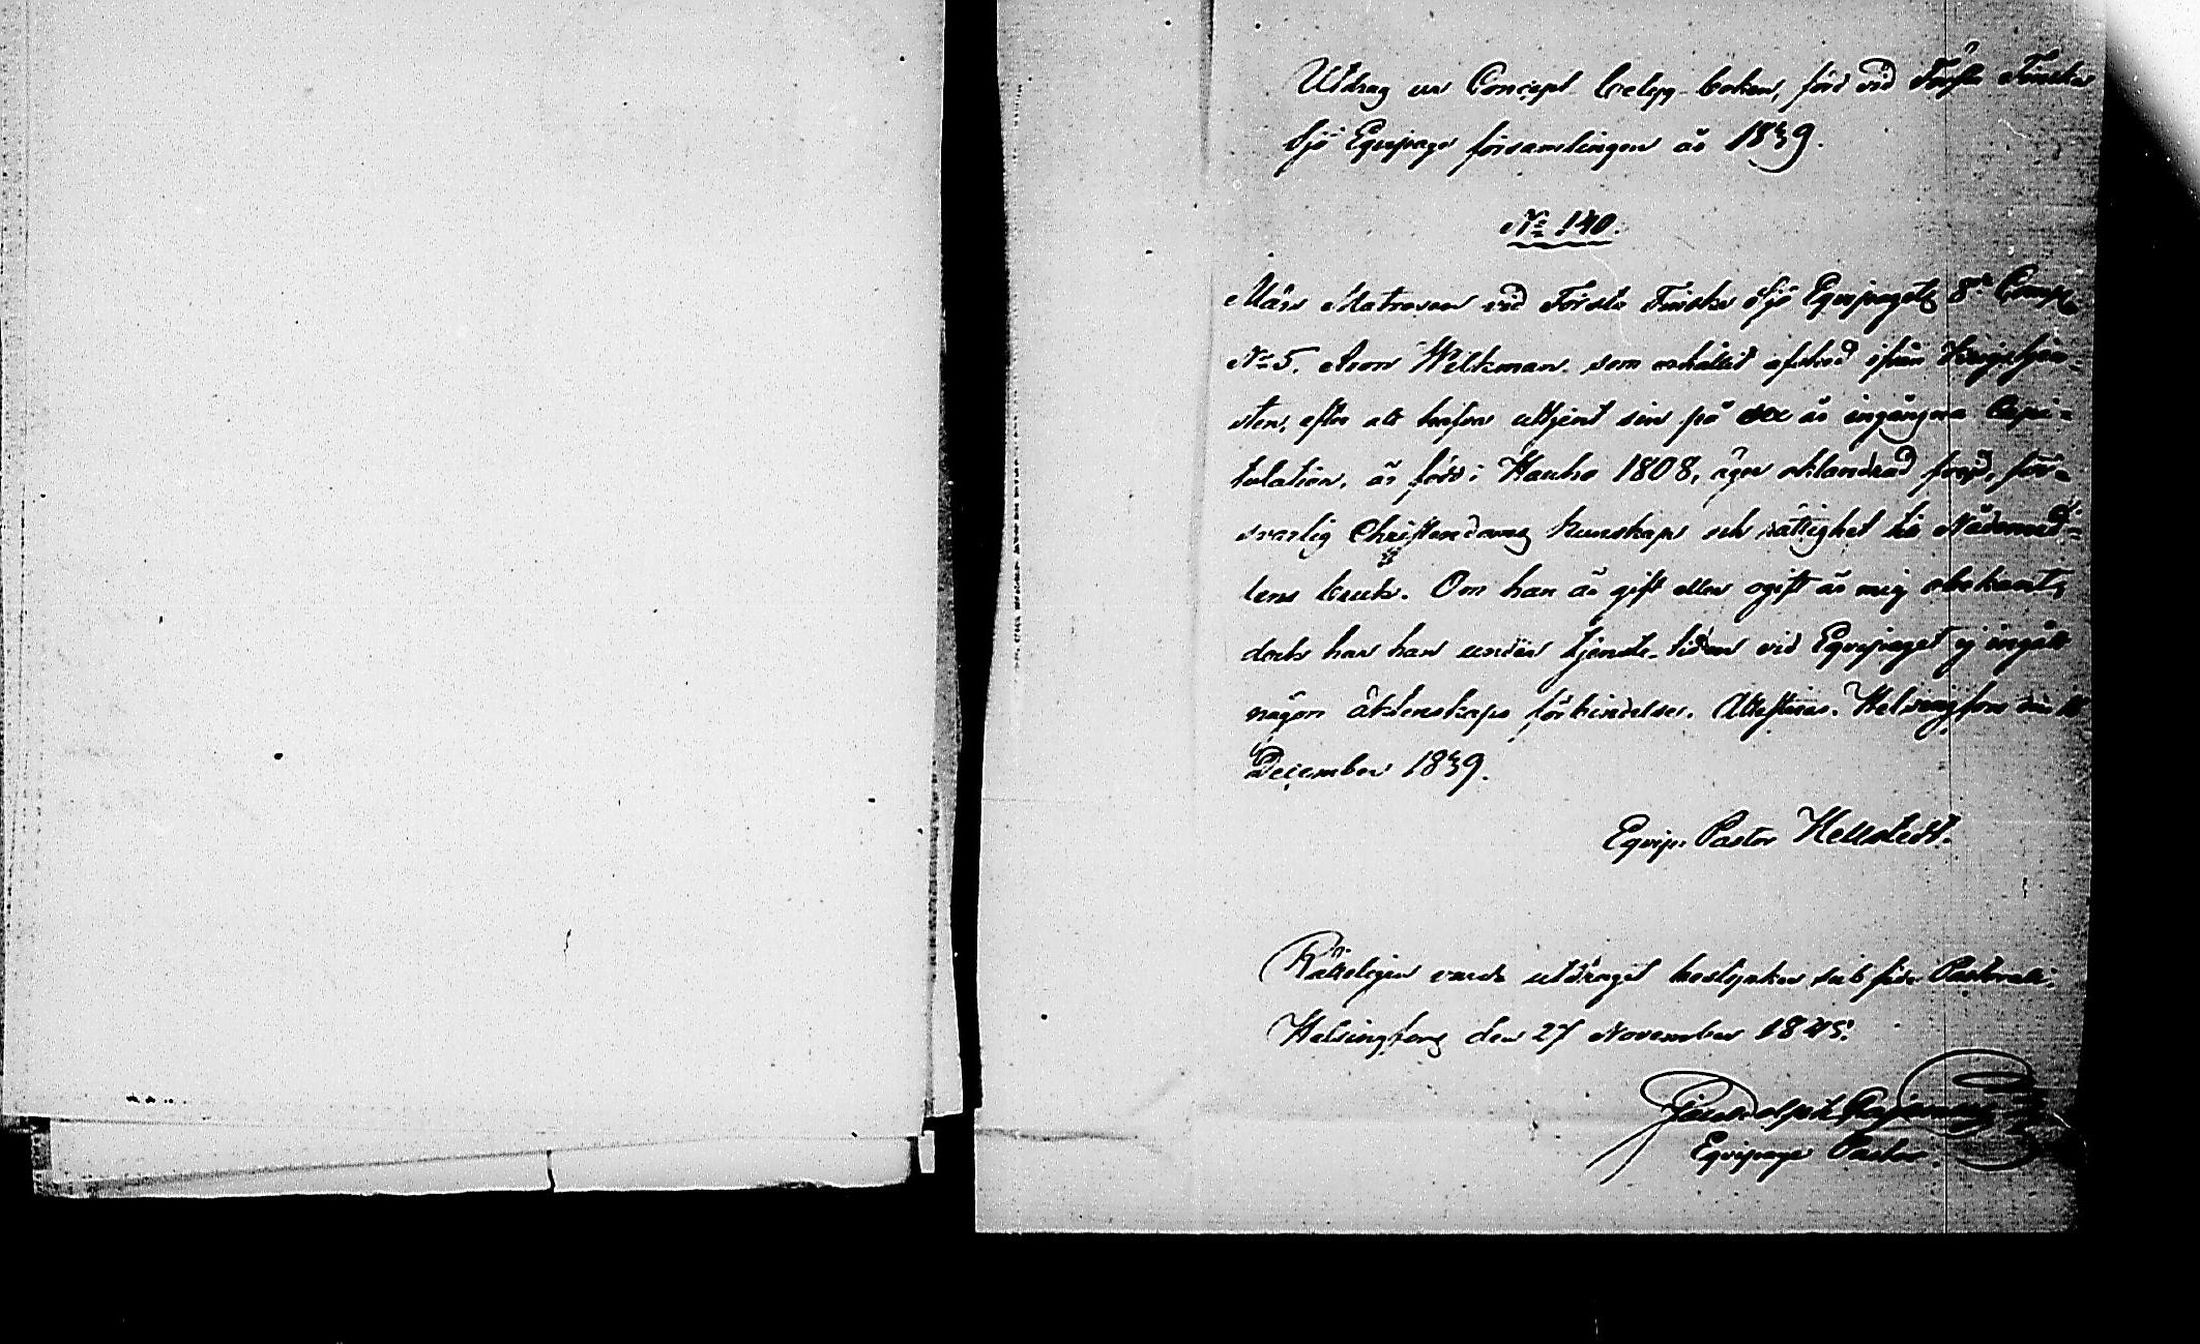 Utdrag ur Concept betyg-boken, förd vid Första Finska
Sjö Equipage församlingen år 1839.
No 140.
Märs Matrosen vid Första Finska Sjö Equipagets 8de Comp.
No 5. Aron Wilkman som erhållit afsked ifrån Krigstjen-
sten, efter att hafva uttjent sin på sex år ingångna Capi-
tulation, är född i Hauho 1808, äger oklandrad frejd, för-
svarlig Christendoms kunskap och rättighet till Nådemed-
lens bruk. Om han är gift eller ogift är mig obekant,
dock har han under tjenste-tiden vid Equipaget ej ingått
någon äktenskaps förbindelse. Attesteras. Helsingfors den
December 1839.
Equip. Pastor Hellstedt.
Rätteligen vara utdraget betygar sub fide Pastorali.
Helsingfors den 27 November 1845.
Equipage Pastor.